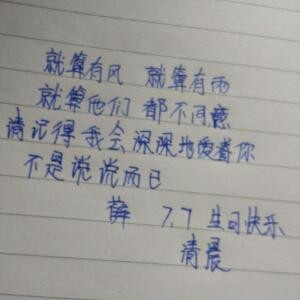 就算有风 就算有雨
就算他们 都不同意
请记得我会深深地爱着你
不是说说而已
薛 7.7 生日快乐
清晨